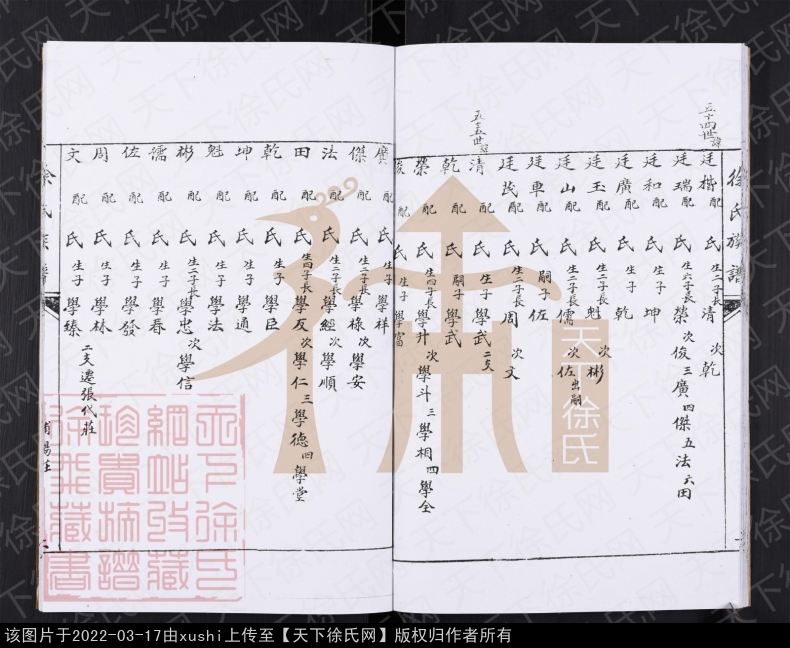 徐氏族譜
五十四世諱
廷楷 配 氏 生二子長清 次乾
廷瑞 配 氏 生六子長榮 次俊 三廣 四傑 五法 六田
廷和 配 氏 生子坤
廷廣 配 氏 生子乾
廷玉 配 氏 生二子長魁 次彬
廷山 配 氏 生二子長儒 次佐 出嗣
廷車 配 氏 嗣子佐
廷茂 配 氏 生二子長周 次文
五十五世諱
清 配 氏 生子學武 二支
乾 配 氏 嗣子學武
榮 配 氏 生四子長學升 次學斗 三學相 四學全
俊 配 氏 生子學富
廣 配 氏 生子學祥
傑 配 氏 生二子長學祿 次學安
法 配 氏 生二子長學經 次學順
田 配 氏 生四子長學友 次學仁 三學德 四學堂
乾 配 氏 生子學臣
坤 配 氏 生子學通
魁 配 氏 生子學法
彬 配 氏 生二子長學忠 次學信
儒 配 氏 生子學春
佐 配 氏 生子學發
周 配 氏 生子學林
文 配 氏 生子學臻
二支遷張代莊
徐氏族譜
天下徐氏
天下徐氏
網站收藏
珍貴撫譜
徐飛藏書
天下徐氏网
该图片于2022-03-17由xushi上传至【天下徐氏网】版权归作者所有